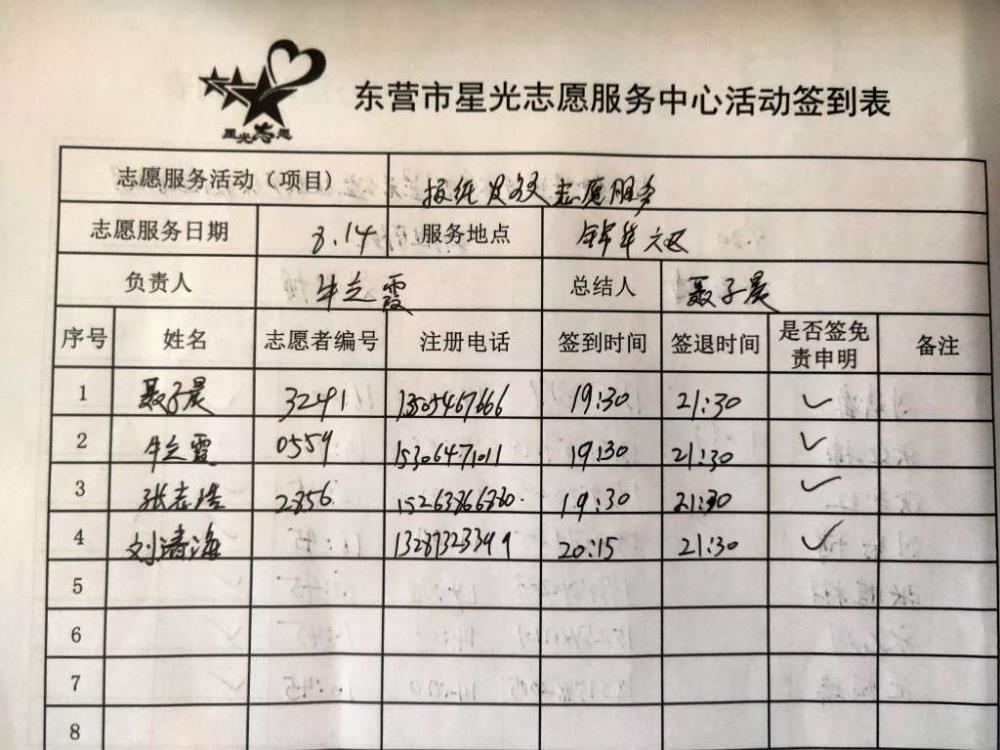 星光志愿
东营市星光志愿服务中心活动签到表
志愿服务活动（项目） 报纸发放志愿服务
志愿服务日期 3.14 服务地点 锦华六区
负责人 牛立霞 总结人 聂子晨
序号 姓名 志愿者编号 注册电话 签到时间 签退时间 是否签免责申明 备注
1 聂子晨 3291 13505467666 19:30 21:30 ✓
2 牛立霞 0559 15306471011 19:30 21:30 ✓
3 张志浩 2856 15263866860 19:30 21:30 ✓
4 刘涛海 13287323349 20:15 21:30 ✓
5
6
7
8